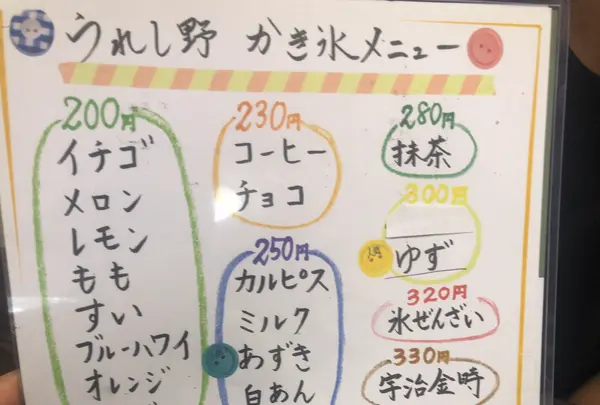 うれし野 かき氷メニュー
200円
イチゴ
メロン
レモン
もも
すい
ブルーハワイ
オレンジ
230円
コーヒー
チョコ
250円
カルピス
ミルク
あずき
白あん
280円
抹茶
300円
ゆず
320円
氷ぜんざい
330円
宇治金時